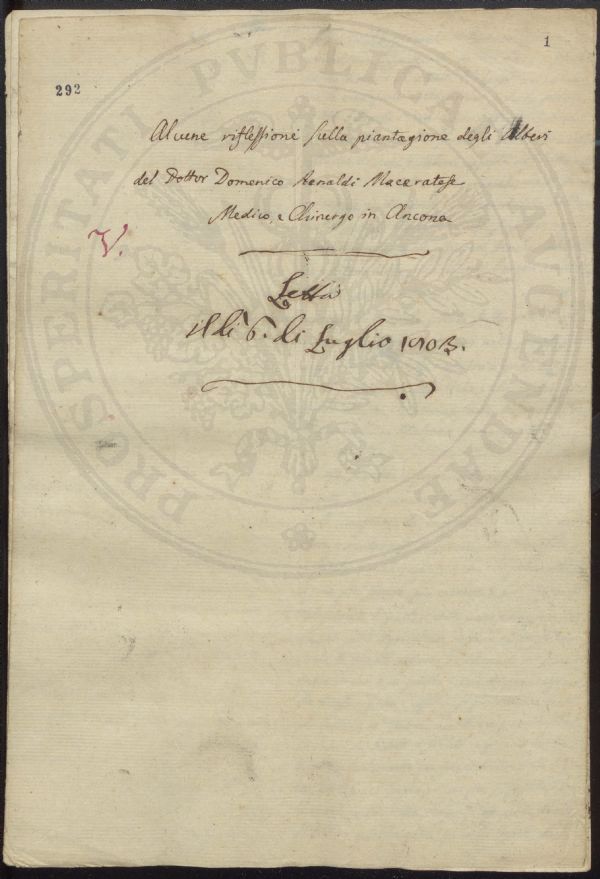 1
292
Alcune riflessioni sulla piantagione degli Alberi
del Dottor Domenico Maceratese
Medico, e Chirurgo in Ancona
V.
Letta
il dì 6. di Luglio 1803.
PROSPERITATI PVBLICAE AVGENDAE